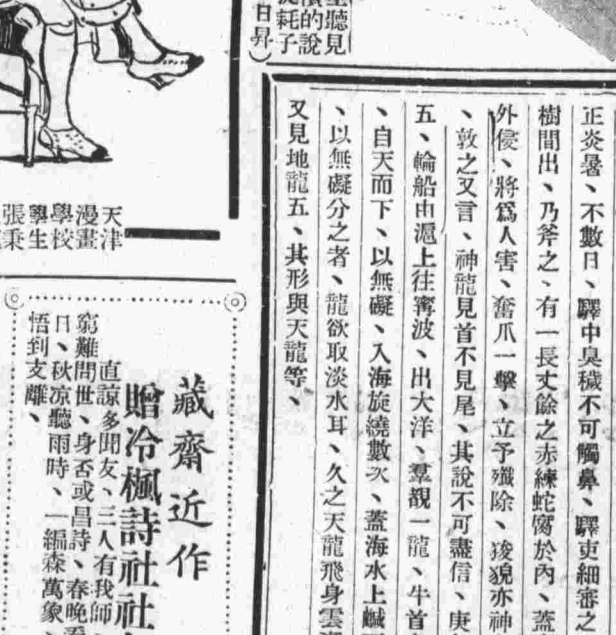 聽見
的說
耗子
日昇）
正炎暑、不數日、驛中臭穢不可觸鼻、驛吏細審之
樹間出、乃斧之、有一長丈餘之赤練蛇窟於內、蓋
外侵、將爲人害、奮爪一擊、立予殲除、狻猊亦神
、敦之又言、神龍見首不見尾、其說不可盡信、庚
五、輪船由滬上往甯波、出大洋、羣覩一龍、牛首
、自天而下、以無礙、入海旋繞數次、蓋海水上鹹
、以無礙分之者、龍欲取淡水耳、久之天龍飛身雲
又見地龍五、其形與天龍等、
天津
漫畫
學校
學生
張秉
藏齋近作
贈冷楓詩社社
直諒多聞友、三人有我師
窮難問世、身否或昌詩、春晚看
日、秋凉聽雨時、一編森萬象
悟到支離、